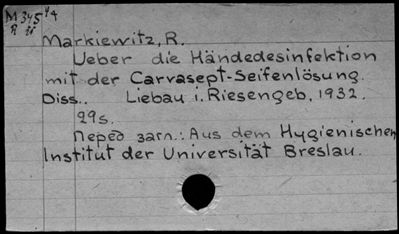 M 345 44
R ii
Markiewitz, R.
Ueber die Händedesinfektion
mit der Carvasept-Seifenlösung.
Diss.. Liebau i. Riesengeb, 1932.
29s.
Перед загл.: Aus dem Hygienischen
Institut der Universität Breslau.